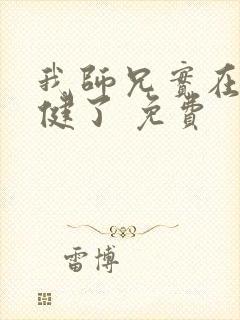 我師兄實在
健了 免費
雷博